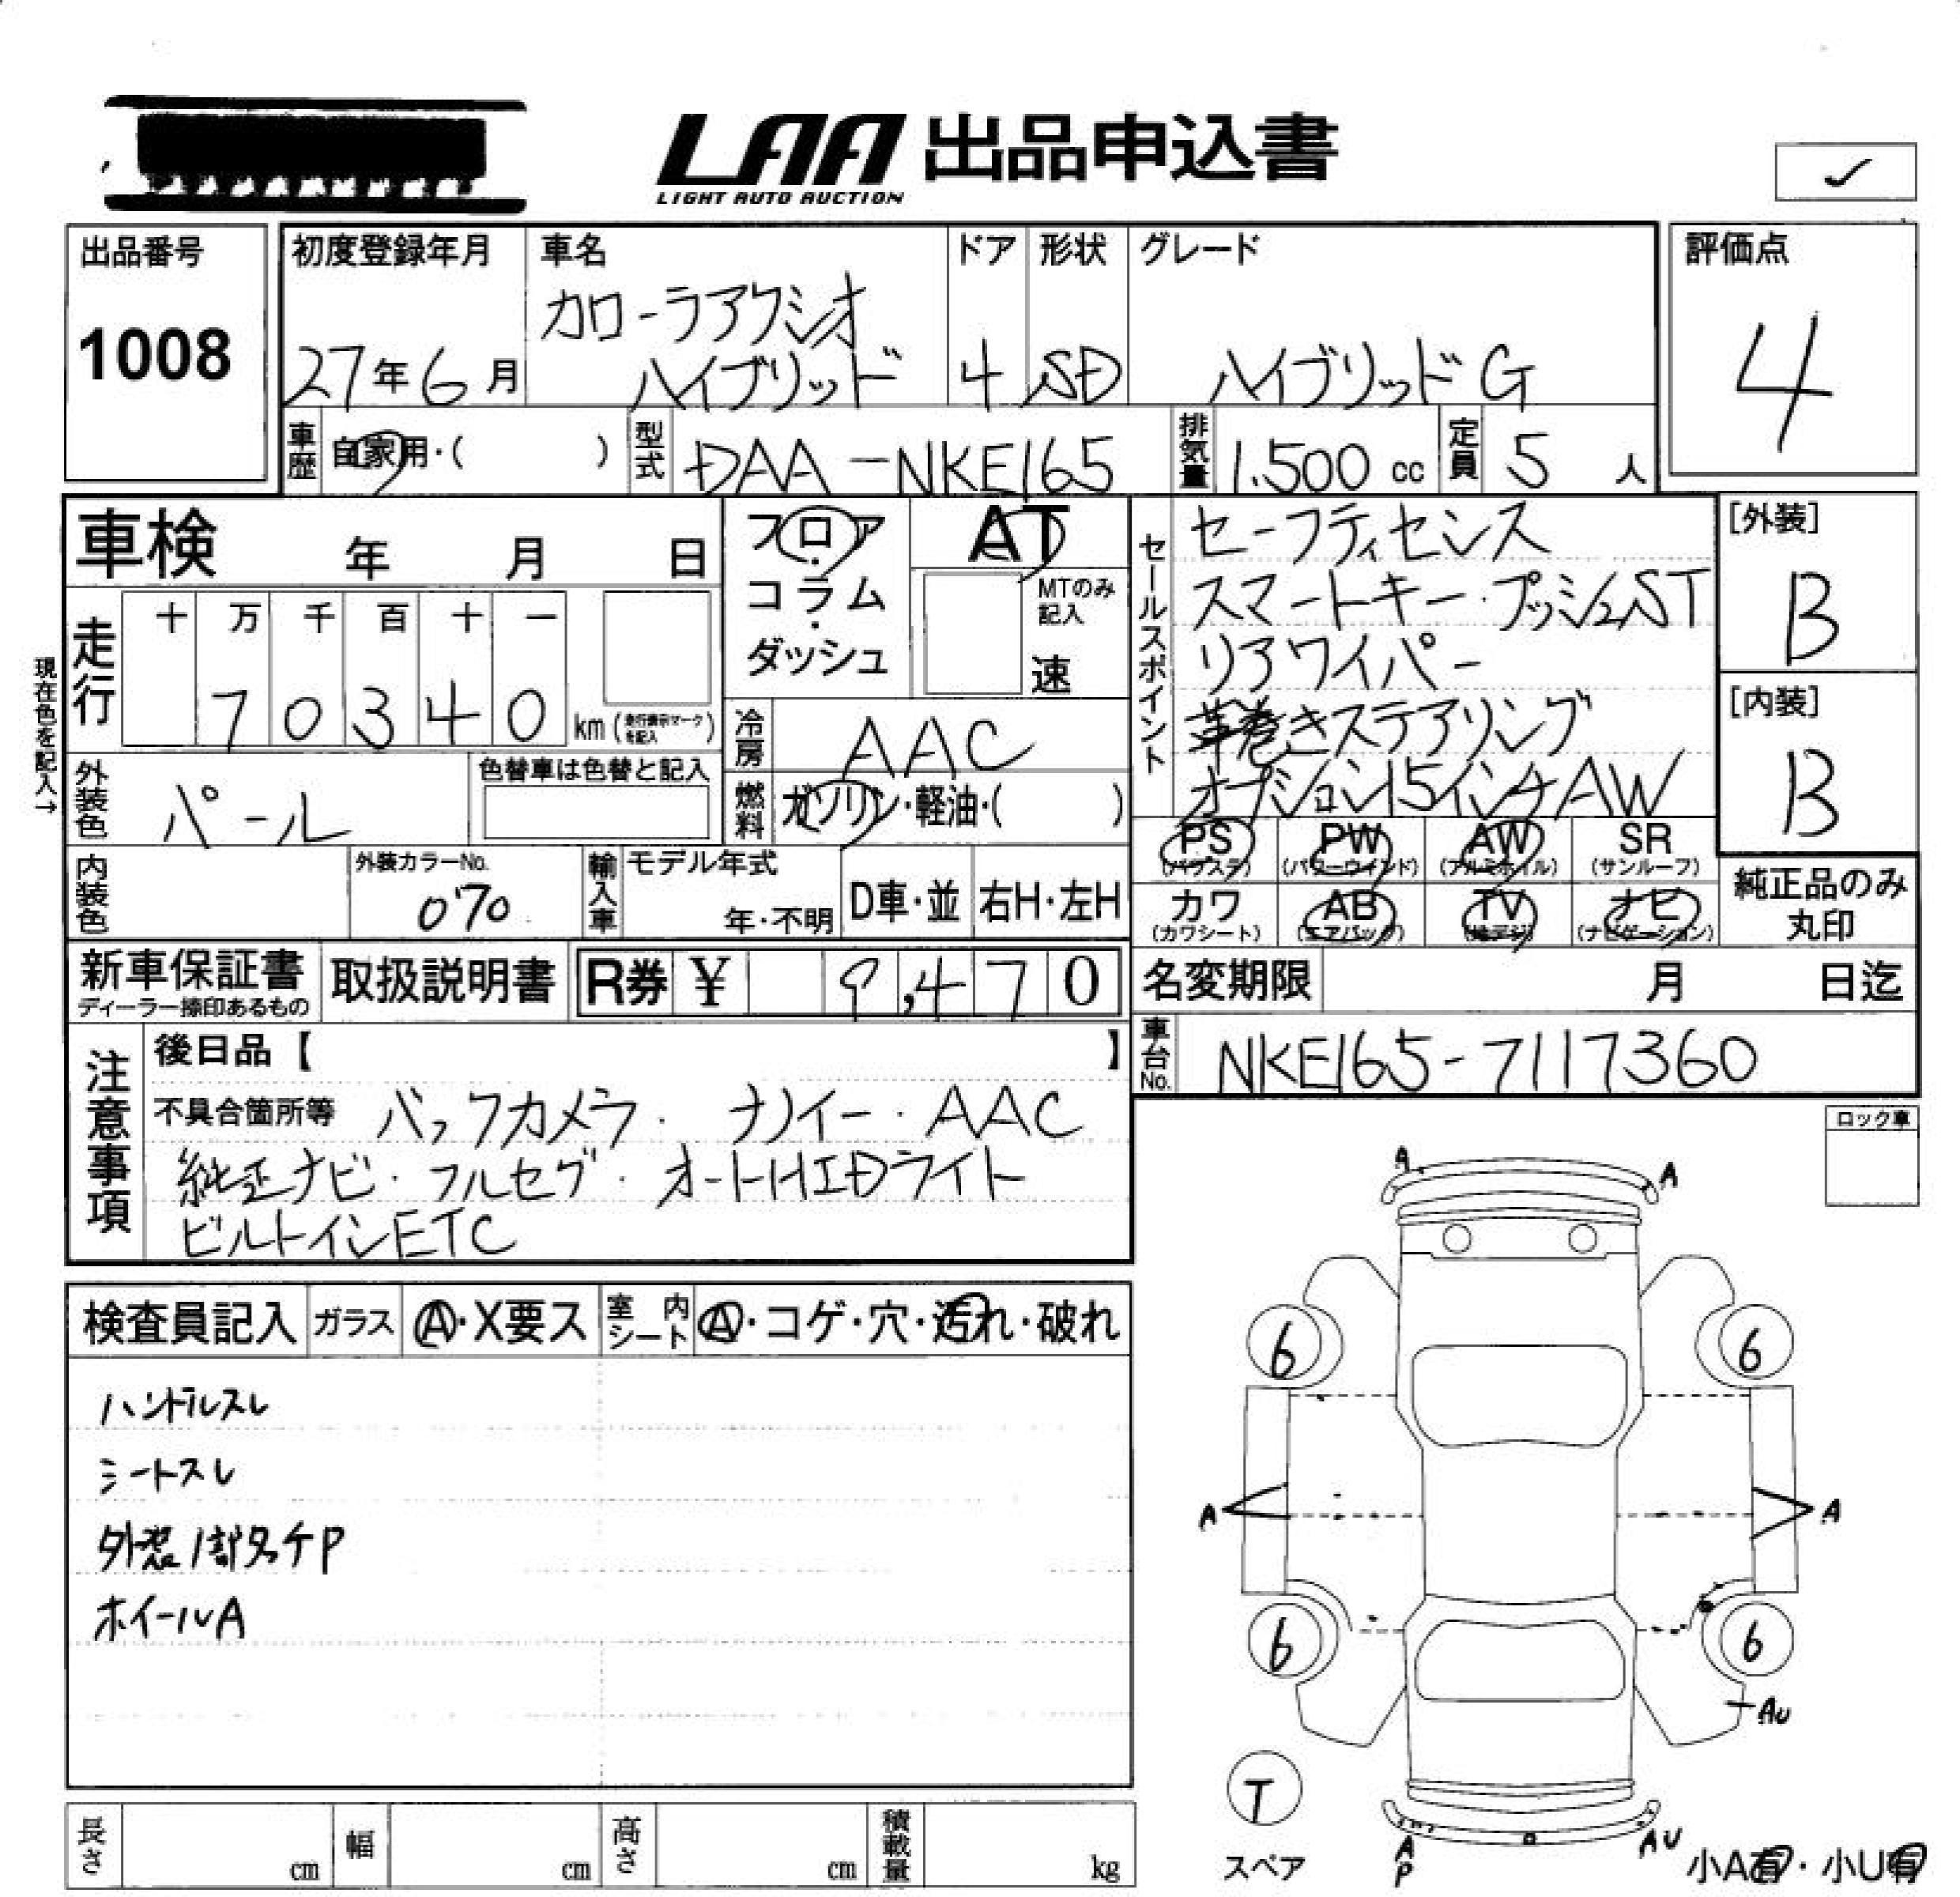 LAA 出品申込書
LIGHT AUTO AUCTION
✓
出品番号
1008
初度登録年月
27年6月
車名
カローラアクシオ
ハイブリッド
ドア
4
形状
SD
グレード
ハイブリッドG
評価点
4
車歴
自家用・( )
型式
DAA-NKE165
排気量
1.500 cc
定員
5 人
車検 年 月 日
フロア・コラム・ダッシュ
AT
MTのみ記入
速
セールスポイント
セーフティセンス
スマートキー・プッシュST
リアワイパー
革巻きステアリング
オプション15インチAW
[外装]
B
[内装]
B
現在色を記入→
走行
十 万 千 百 十 一
7 0 3 4 0 km (走行表示マークを記入)
冷房
AAC
外装色
パール
色替車は色替と記入
燃料
ガソリン・軽油・( )
内装色
外装カラーNo.
070
輸入車
モデル年式
年・不明
D車・並
右H・左H
PS (パワステ)
PW (パワーウインド)
AW (アルミホイル)
SR (サンルーフ)
カワ (カワシート)
AB (エアバッグ)
TV (地デジ)
ナビ (ナビゲーション)
純正品のみ
丸印
新車保証書
ディーラー捺印あるもの
取扱説明書
R券 ¥ 9,470
名変期限 月 日迄
車台No.
NKE165-7117360
注意事項
後日品【 】
不具合箇所等 バックカメラ・ナノイー・AAC
純正ナビ・フルセグ・オートHIDライト
ビルトインETC
ロック車
検査員記入
ガラス
A・X要ス
室内シート
A・コゲ・穴・汚れ・破れ
ハンドルスレ
シートスレ
外装1部タッチP
ホイールA
A
A
6
6
A
A
6
6
AU
T
スペア
A
P
AU
小A有・小U有
長さ cm
幅 cm
高さ cm
積載量 kg